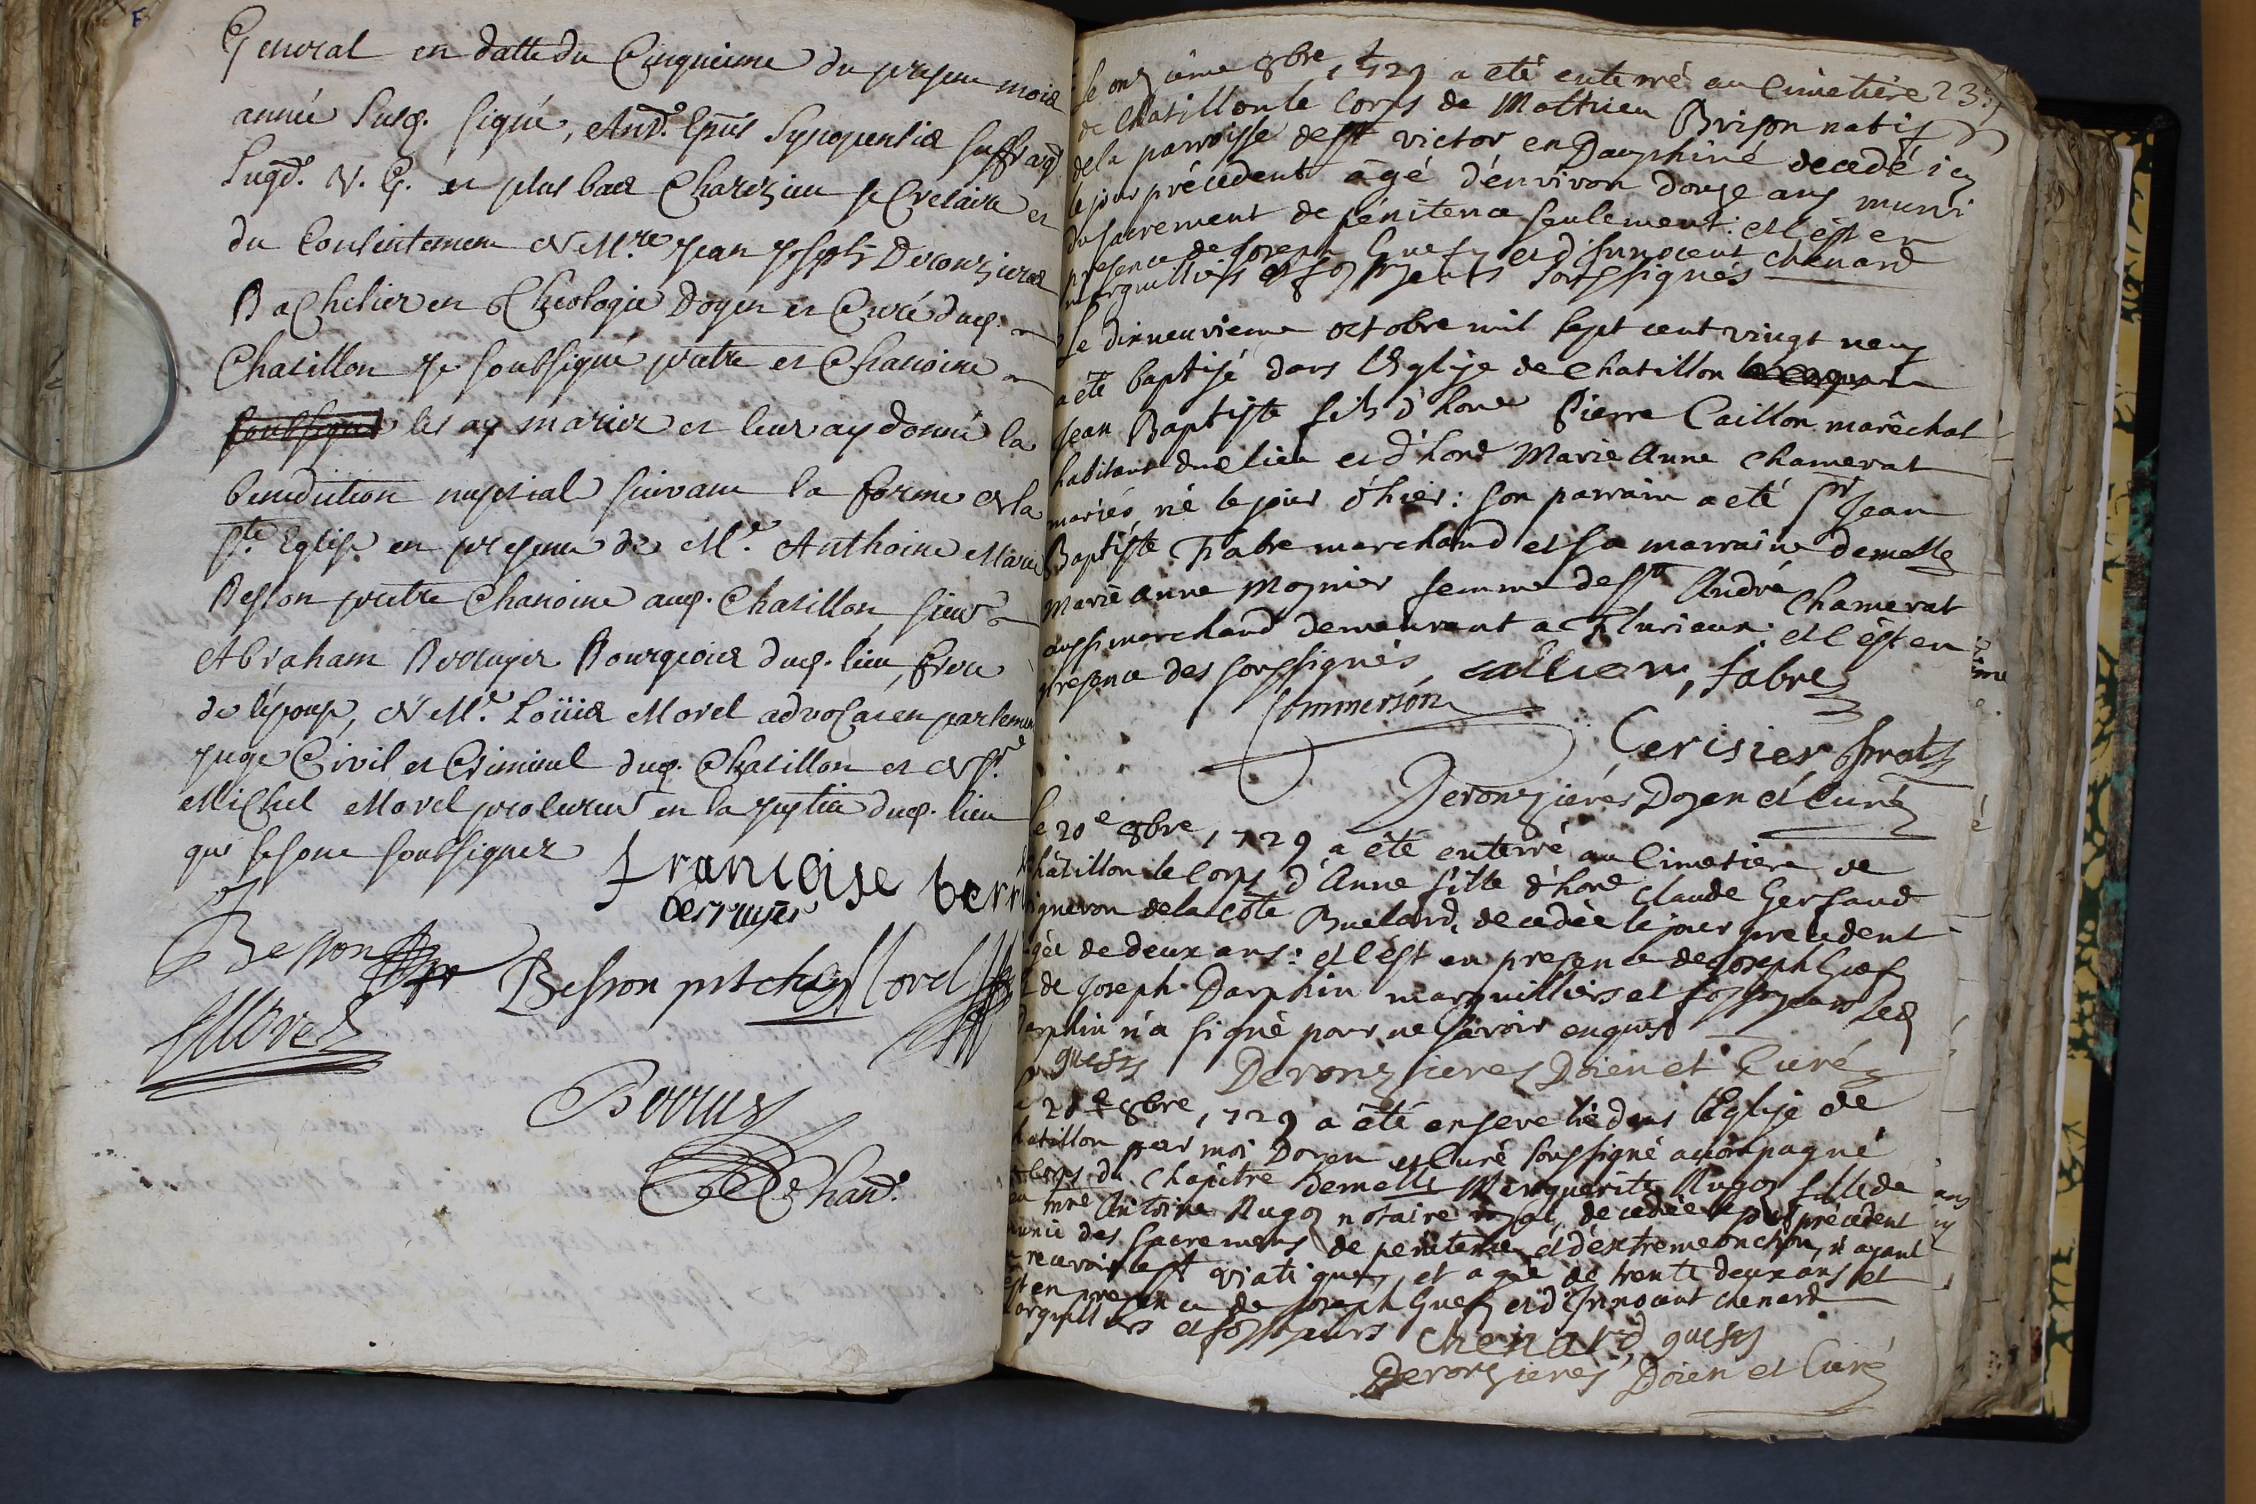 General en datte du Cinquieme du present mois
année susd. signé, And. Epus Synopensis suffrag.
Lugd. V. G. et plus bas Charezieu secretaire et
du Consentement de Mre Jean Joseph Deronzieres
Bachelier en Theologie Doyen et Curé dud.
Chatillon je soubsigné prêtre et Chanoine
soubsigné les ay marier et leur ay donné la
benediction nuptial suivant la forme de la
Ste Eglise en presence de Mr. Anthoine Marie
Besson prêtre Chanoine aud. Chatillon, sieur
Abraham Bourgeois dud. lieu, frere
de l'épouse, de Mr. Loüis Morel advocat en parlement
juge Civil et Criminel dud. Chatillon et de Sr.
Michel Morel procureur en la justice dud. lieu
qui se sont soubsignez
françoise
Besson
Besson prt chan Morel
Morel
Chan.
Le onzieme 8bre 1729 a eté enterré au Cimetiere 23
de Chatillon le Corps de Mathieu Brison natif
de la parroisse de St victor en Dauphiné decedé icy
le jour précedent agé d'environ douze ans muni
du sacrement de pénitence seulement: et c'est en
presence de Joseph Guesy et d'Innocent Chenard
marguilliers et fossoyeurs soussignés
Le dixneuvieme octobre mil sept cent vingt neuf
a eté baptisé dans l'Eglise de Chatillon
Jean Baptiste fils d'hone Pierre Caillon marêchal
habitant dud lieu et d'hone Marie Anne Chamerat
mariés né le jour d'hier: son parrain a eté Sr Jean
Baptiste Fabre marchand et sa marraine demelle
Marie Anne Mognier femme de Sr André Chamerat
aussi marchand demeurant a Fleurieux: et c'est en
presence des soussignés, Callion, fabre
Commerson
Cerisier
Deronzierés Doyen et Curé
le 20e 8bre 1729 a été enterré au Cimetiere de
Châtillon le Corps d'Anne fille d'hone Claude Gerfaud
vigneron de la Côte Buelard, decedée le jour precedent
agée de deux ans: et c'est en presence de Joseph Guesy
et de Joseph Darphin marguilliers et fossoyeurs led
Darphin n'a signé pour ne savoir enquis
guesy Deronzieres Doien et Curé
le 28e 8bre 1729 a été ensevelie dans l'Eglise de
Chatillon par moi Doyen et Curé soussigné accompagné
du Chapitre demelle Marguerite Rugoz fille de
feu mre Antoine Rugoz notaire royal, decedée le jour précedent
munie des sacremens de penitence et d'extreme onction, n'ayant
pu recevoir le st viatique, et agée de trente deux ans et
c'est en presence de Joseph Guesy et d'Innocent Chenard
marguilliers et fossoyeurs Chenard guesy
Deronzieres Doien et Curé